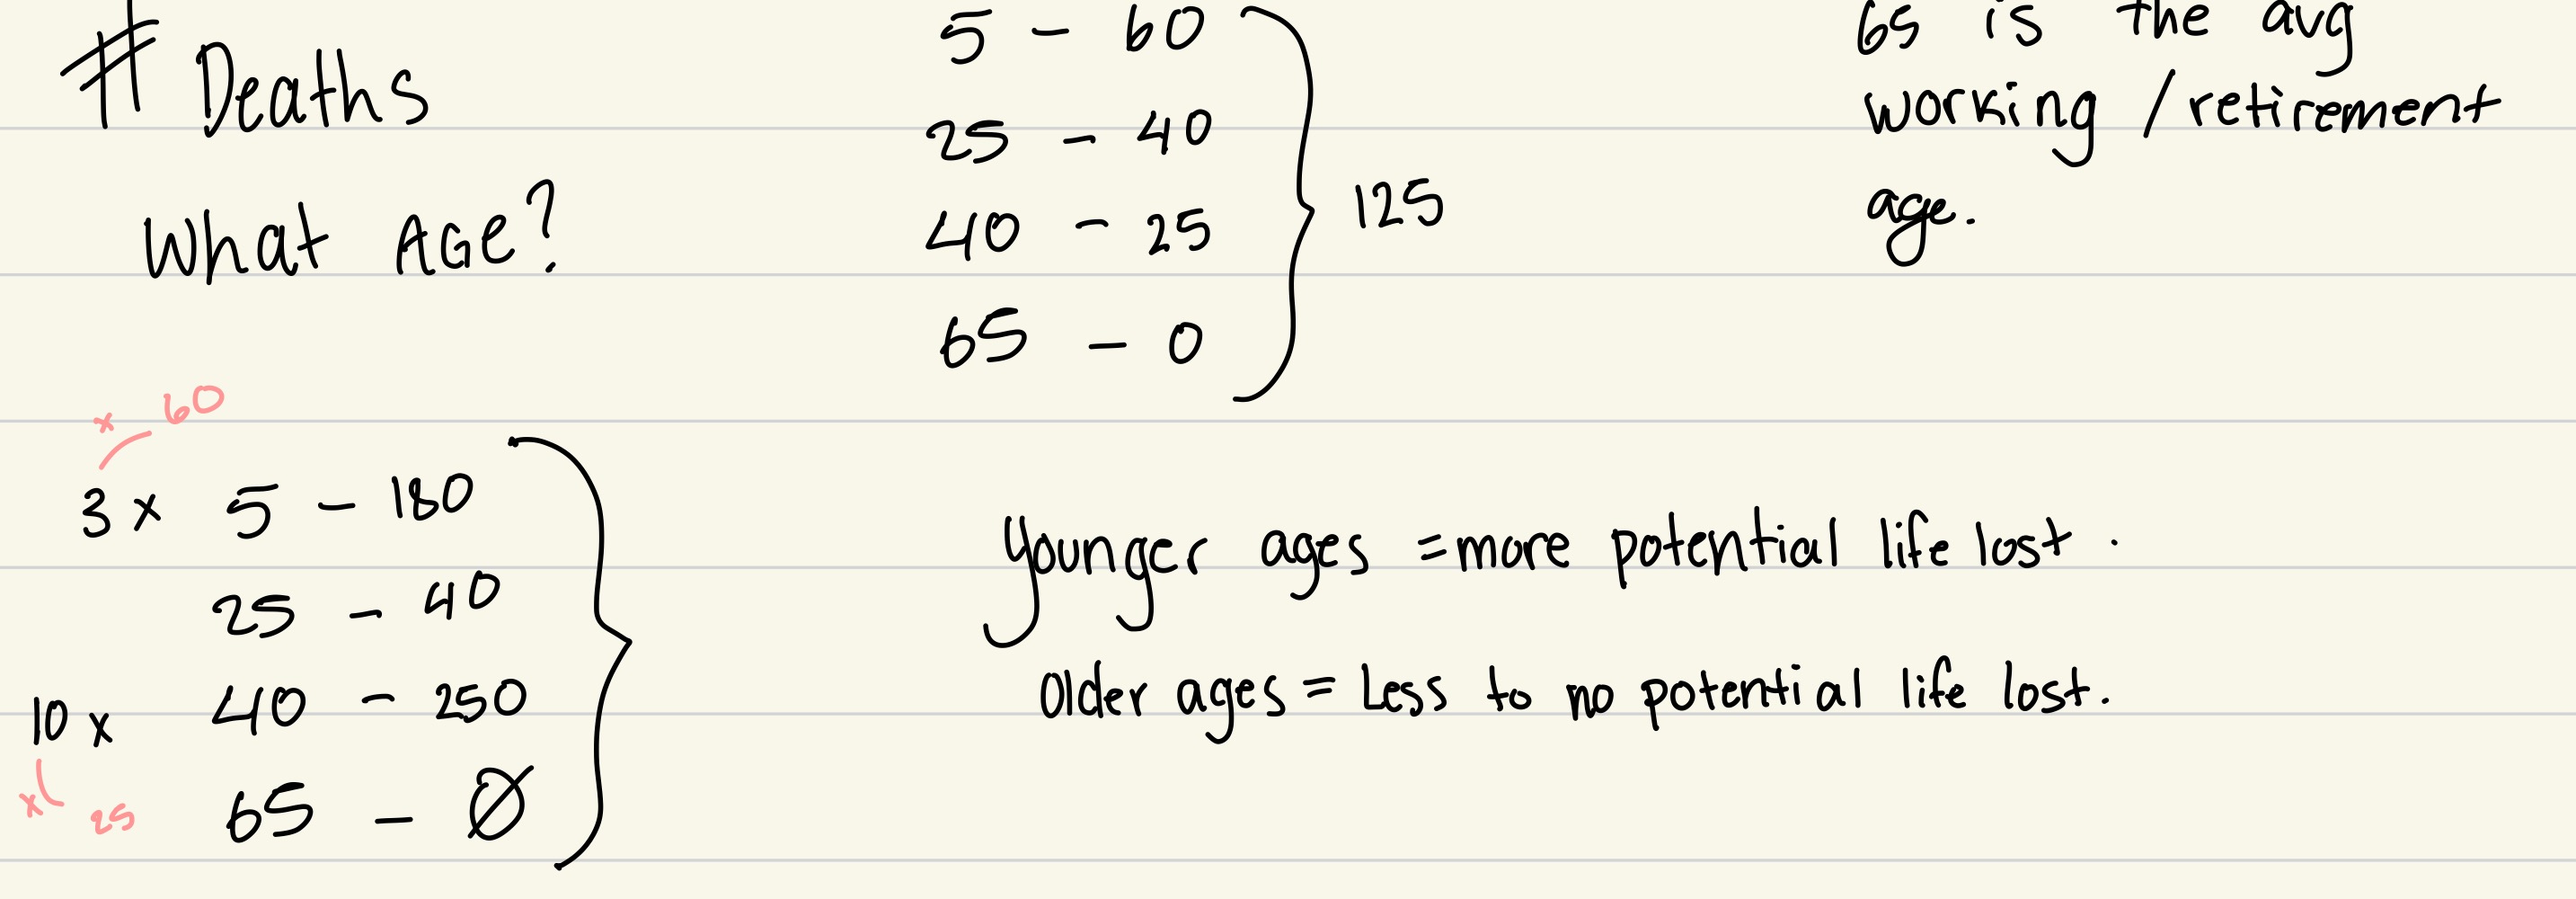 # Deaths
What Age?
5 - 60
25 - 40
40 - 25
65 - 0
125
65 is the avg
working / retirement
age.
x 60
3 x 5 - 180
25 - 40
10 x 40 - 250
x 25
65 - Ø
Younger ages = more potential life lost.
Older ages = Less to no potential life lost.